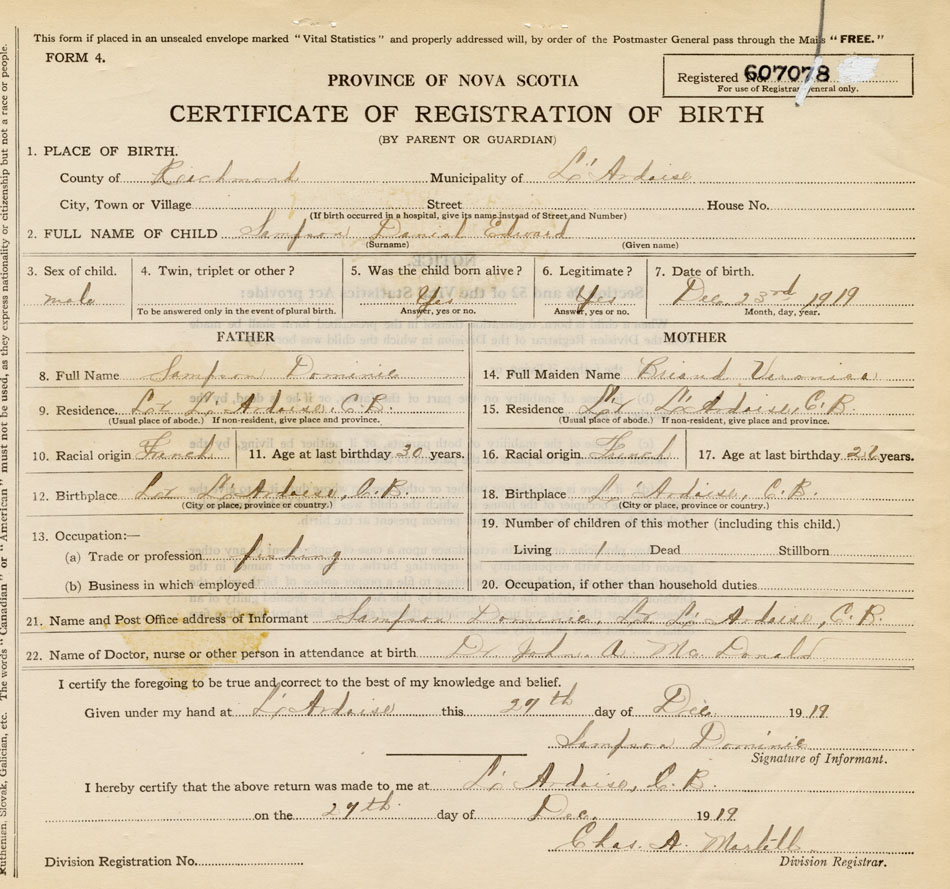 This form if placed in an unsealed envelope marked "Vital Statistics" and properly addressed will, by order of the Postmaster General pass through the Mails "FREE."
FORM 4.
PROVINCE OF NOVA SCOTIA
Registered No. 607078
For use of Registrar General only.
CERTIFICATE OF REGISTRATION OF BIRTH
(BY PARENT OR GUARDIAN)
1. PLACE OF BIRTH.
County of Richmond Municipality of L'Ardoise
City, Town or Village Street House No.
(If birth occurred in a hospital, give its name instead of Street and Number)
2. FULL NAME OF CHILD Sampson Daniel Edward
(Surname) (Given name)
3. Sex of child. 4. Twin, triplet or other? 5. Was the child born alive? 6. Legitimate? 7. Date of birth.
male Yes Yes Dec. 23rd 1919
To be answered only in the event of plural birth. Answer, yes or no. Answer, yes or no. Month, day, year.
FATHER
8. Full Name Sampson Dominic
9. Residence Lr L'Ardoise, C.B.
(Usual place of abode.) If non-resident, give place and province.
10. Racial origin French 11. Age at last birthday 30 years.
12. Birthplace Lr L'Ardoise, C.B.
(City or place, province or country.)
13. Occupation:—
(a) Trade or profession fishing
(b) Business in which employed
MOTHER
14. Full Maiden Name Briand Veronica
15. Residence Lr L'Ardoise, C.B.
(Usual place of abode.) If non-resident, give place and province.
16. Racial origin French 17. Age at last birthday years.
18. Birthplace L'Ardoise, C.B.
(City or place, province or country.)
19. Number of children of this mother (including this child.)
Living 1 Dead Stillborn
20. Occupation, if other than household duties
21. Name and Post Office address of Informant Sampson Dominic, Lr L'Ardoise, C.B.
22. Name of Doctor, nurse or other person in attendance at birth Dr John A. McDonald
I certify the foregoing to be true and correct to the best of my knowledge and belief.
Given under my hand at L'Ardoise this 29th day of Dec. 1919
Sampson Dominic
Signature of Informant.
I hereby certify that the above return was made to me at L'Ardoise, C.B.
on the 29th day of Dec. 1919.
Chas. A. Martell
Division Registrar.
Division Registration No.
Ruthenian, Slovak, Galician, etc. The words "Canadian" or "American" must not be used, as they express nationality or citizenship but not a race or people.